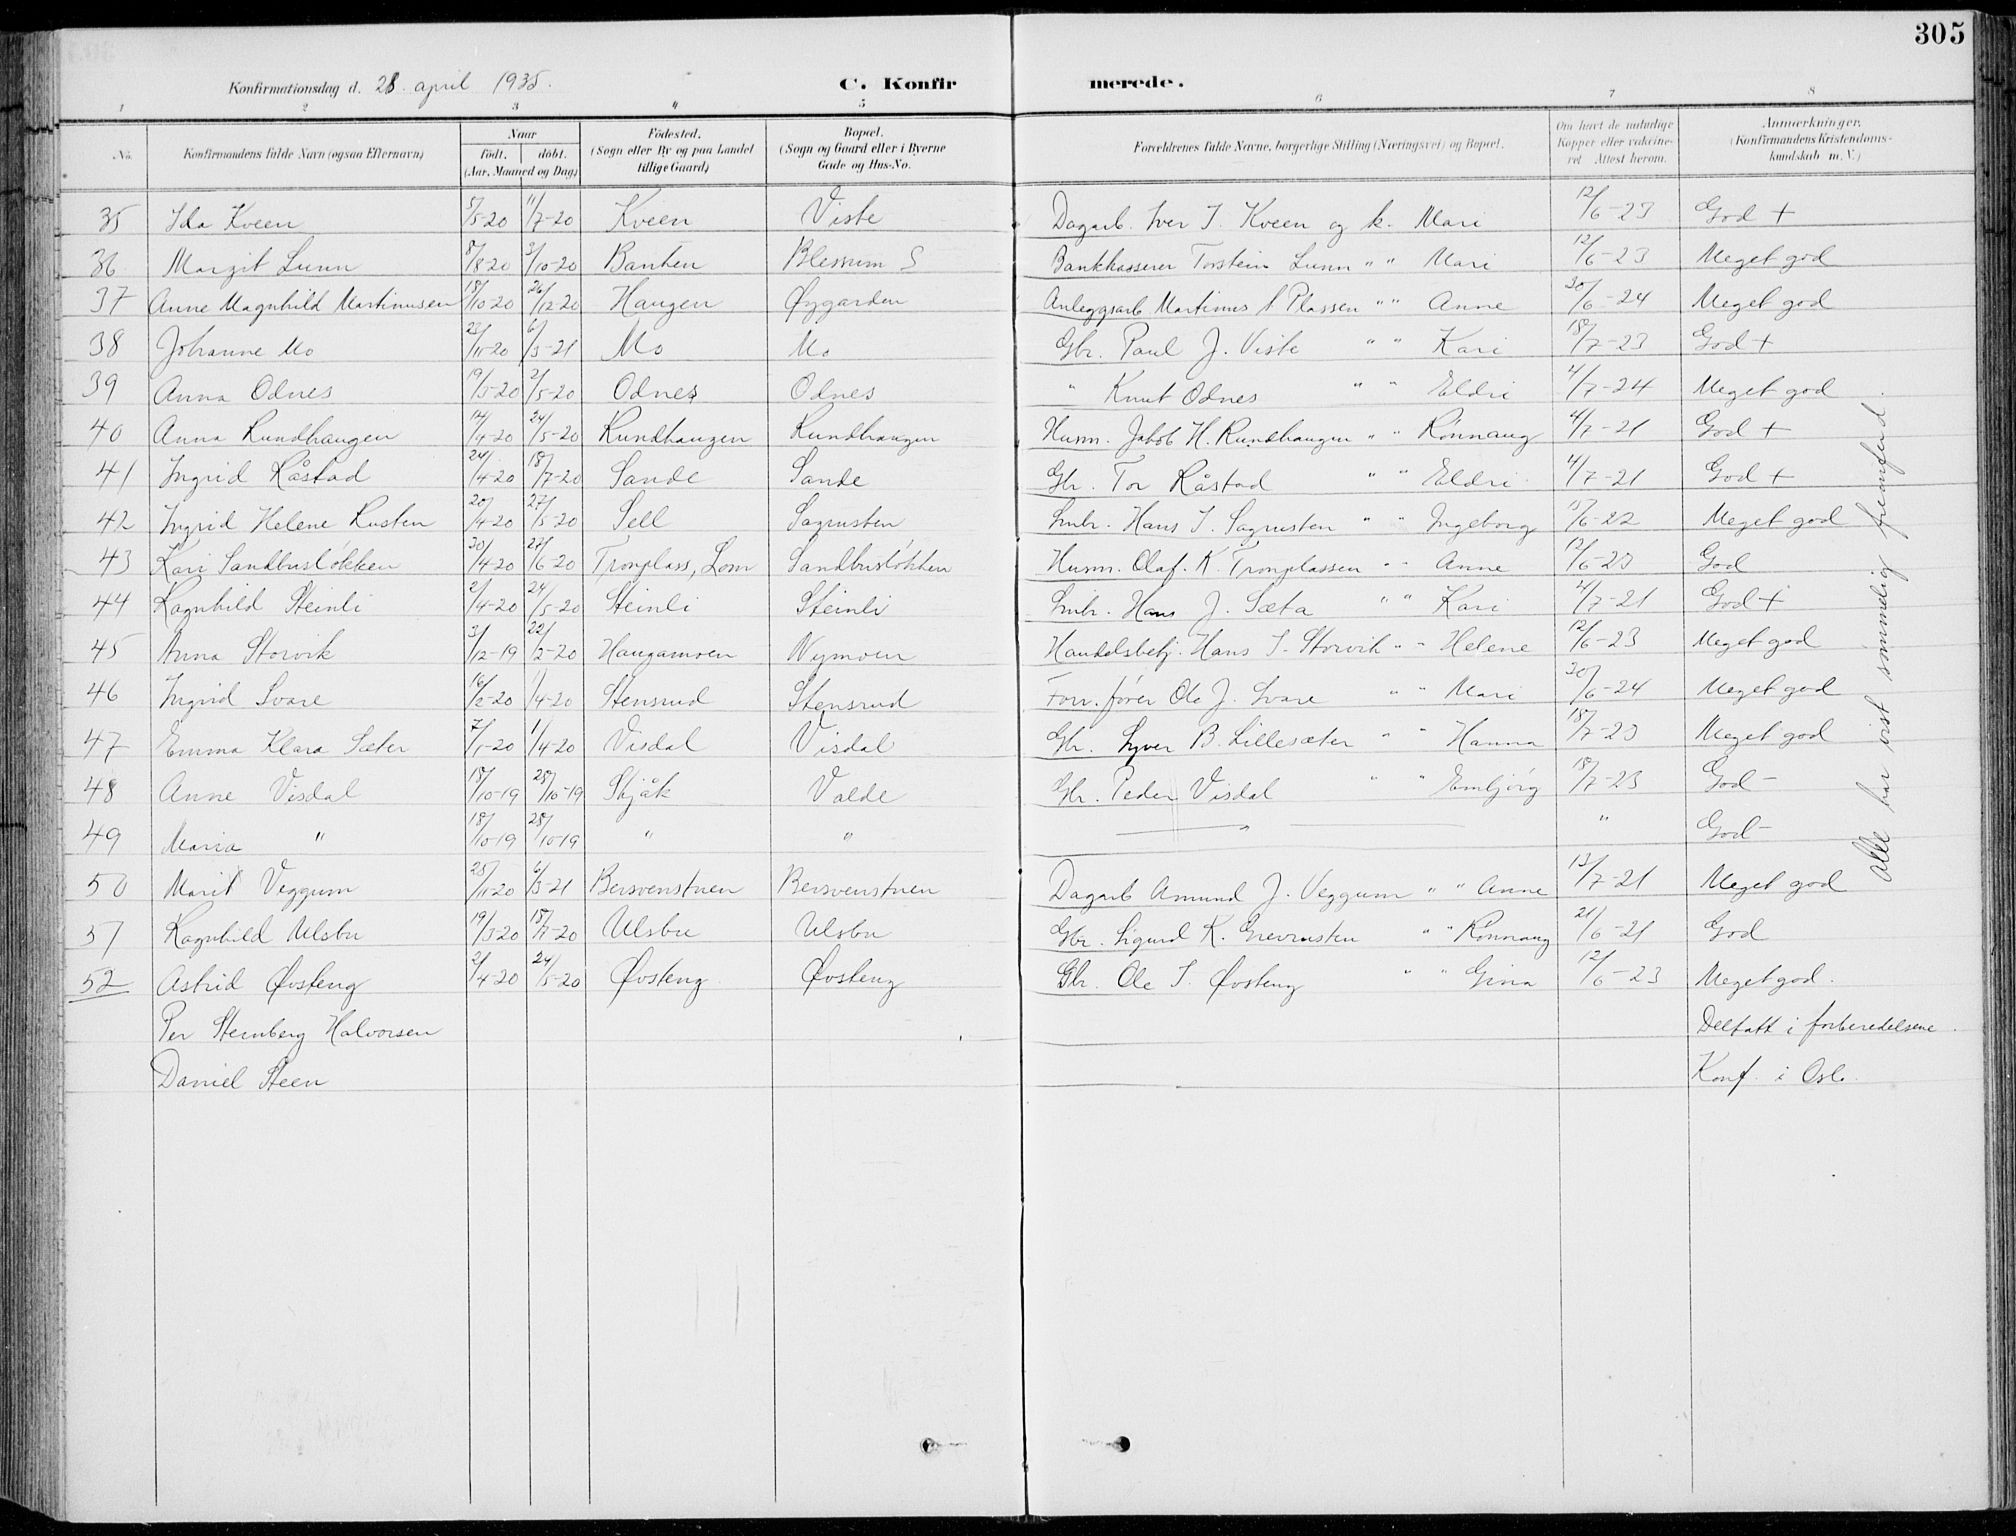 305
Konfirmationsdag d. 28. april 1935.
C. Konfirmerede.
1 2 3 4 5 6 7 8
No. Konfirmandens fulde Navn (ogsaa Efternavn) Naar født. døbt. (Aar, Maaned og Dag) Födested. (Sogn eller By og paa Landet tillige Gaard) Bopæl. (Sogn og Gaard eller i Byerne Gade og Hus-No. Forældrenes fulde Navne, borgerlige Stilling (Næringsvei) og Bopæl. Om havt de naturlige Kopper eller vakcineret Attest herom. Anmærkninger. (Konfirmandens Kristendomskundskab m. V.)
35 Ida Kveen 5/5-20 11/7-20 Kveen Viste Dagarb. Iver I. Kveen og k. Mari 12/6-23 God +
36 Margit Lunn 8/8-20 3/10-20 Banken Blessum S Bankkasserer Torstein Lunn " " Mari 12/6-23 Meget god
37 Anne Magnhild Martinusen 18/10-20 26/12-20 Haugen Øygarden Anleggsarb. Martinus Plassen " " Anne 20/6-24 Meget god
38 Johanne Mo 23/11-20 6/3-21 Mo Mo Gbr. Paul J. Viste " " Kari 18/7-23 God +
39 Anna Odnes 19/3-20 2/5-20 Odnes Odnes " Knut Odnes " " Eldri 4/7-24 Meget god
40 Anna Rundhaugen 14/4-20 24/5-20 Rundhaugen Rundhaugen Husm. Jakob H. Rundhaugen " " Rønnaug 4/7-21 God +
41 Ingrid Råstad 24/4-20 18/7-20 Sande Sande Gbr. Tor Råstad " " Eldri 4/7-21 God +
42 Ingrid Helene Rusten 20/4-20 27/5-20 Sell Sagrusten Smbr. Hans I. Sagrusten " " Ingeborg 15/6-22 Meget god
43 Kari Sandbusløkken 30/4-20 27/6-20 Tronplass, Lom Sandbusløkken Husm. Olaf. K. Tronplassen " " Anne 12/6-23 God
44 Ragnhild Steinli 2/4-20 24/5-20 Steinli Steinli Smbr. Hans J. Sæta " " Kari 4/7-21 God +
45 Anna Storvik 3/12-19 22/2-20 Haugamoen Nymoen Handelsbetj. Hans I. Storvik " " Helene 12/6-23 Meget god
46 Ingrid Svare 16/2-20 1/4-20 Stensrud Stensrud Forr.fører Ole J. Svare " " Mari 30/6-24 Meget god
47 Emma Klara Sæter 7/1-20 1/4-20 Visdal Visdal Gbr. Syver B. Lillesæter " " Hanna 18/7-23 Meget god
48 Anne Visdal 18/10-19 28/10-19 Skjåk Valde Gbr. Peder Visdal " " Embjørg 18/7-23 God -
49 Maria " 18/10-19 28/10-19 " " — " — " God -
50 Marit Veggum 25/11-20 6/3-21 Bersvenstuen Bersvenstuen Dagarb Amund J. Veggum " " Anne 13/7-21 Meget god
51 Ragnhild Ulsbu 19/3-20 18/7-20 Ulsbu Ulsbu Gbr. Sigurd K. Grevrusten " " Rønnaug 21/6-21 God
52 Astrid Øvsteng 2/4-20 24/5-20 Øvsteng Øvsteng Gbr. Ole I. Øvsteng " " Gina 12/6-23 Meget god.
Per Steinberg Halvorsen Deltatt i forberedelsene.
Daniel Steen Konf. i Oslo.
Alle har vist sømmelig fremferd.